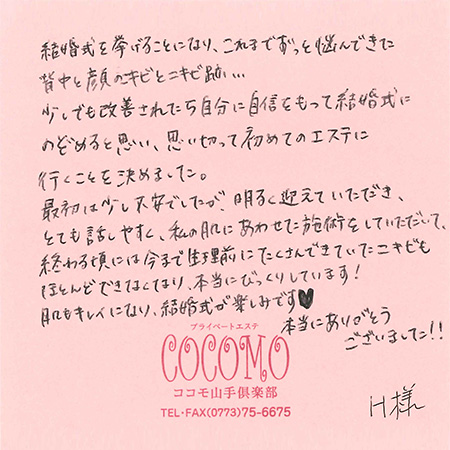 結婚式を挙げることになり、これまでずっと悩んできた
背中と顔のキビとニキビ跡...
少しでも改善されたら自分に自信をもって結婚式に
のぞめると思い、思い切って初めてのエステに
行くことを決めました。
最初は少し不安でしたが、明るく迎えていただき、
とても話しやすく、私の肌にあわせた施術をしていただいて、
終わる頃には今まで生理前にたくさんできていたニキビも
ほとんどできなくなり、本当にびっくりしています!
肌もキレイになり、結婚式が楽しみです♥
本当にありがとう
ございました!!
プライベートエステ
COCOMO
ココモ山手倶楽部
TEL・FAX(0773)75-6675
H様